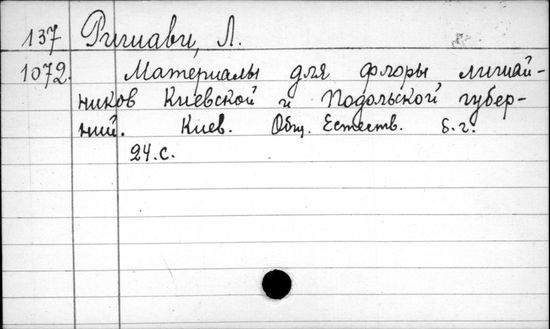 137 Ришави, Л.
1072. Материалы для флоры лишай-
ников Киевской и Подольской губер-
ний. Киев. Общ. Естеств. б.г.
24.с.